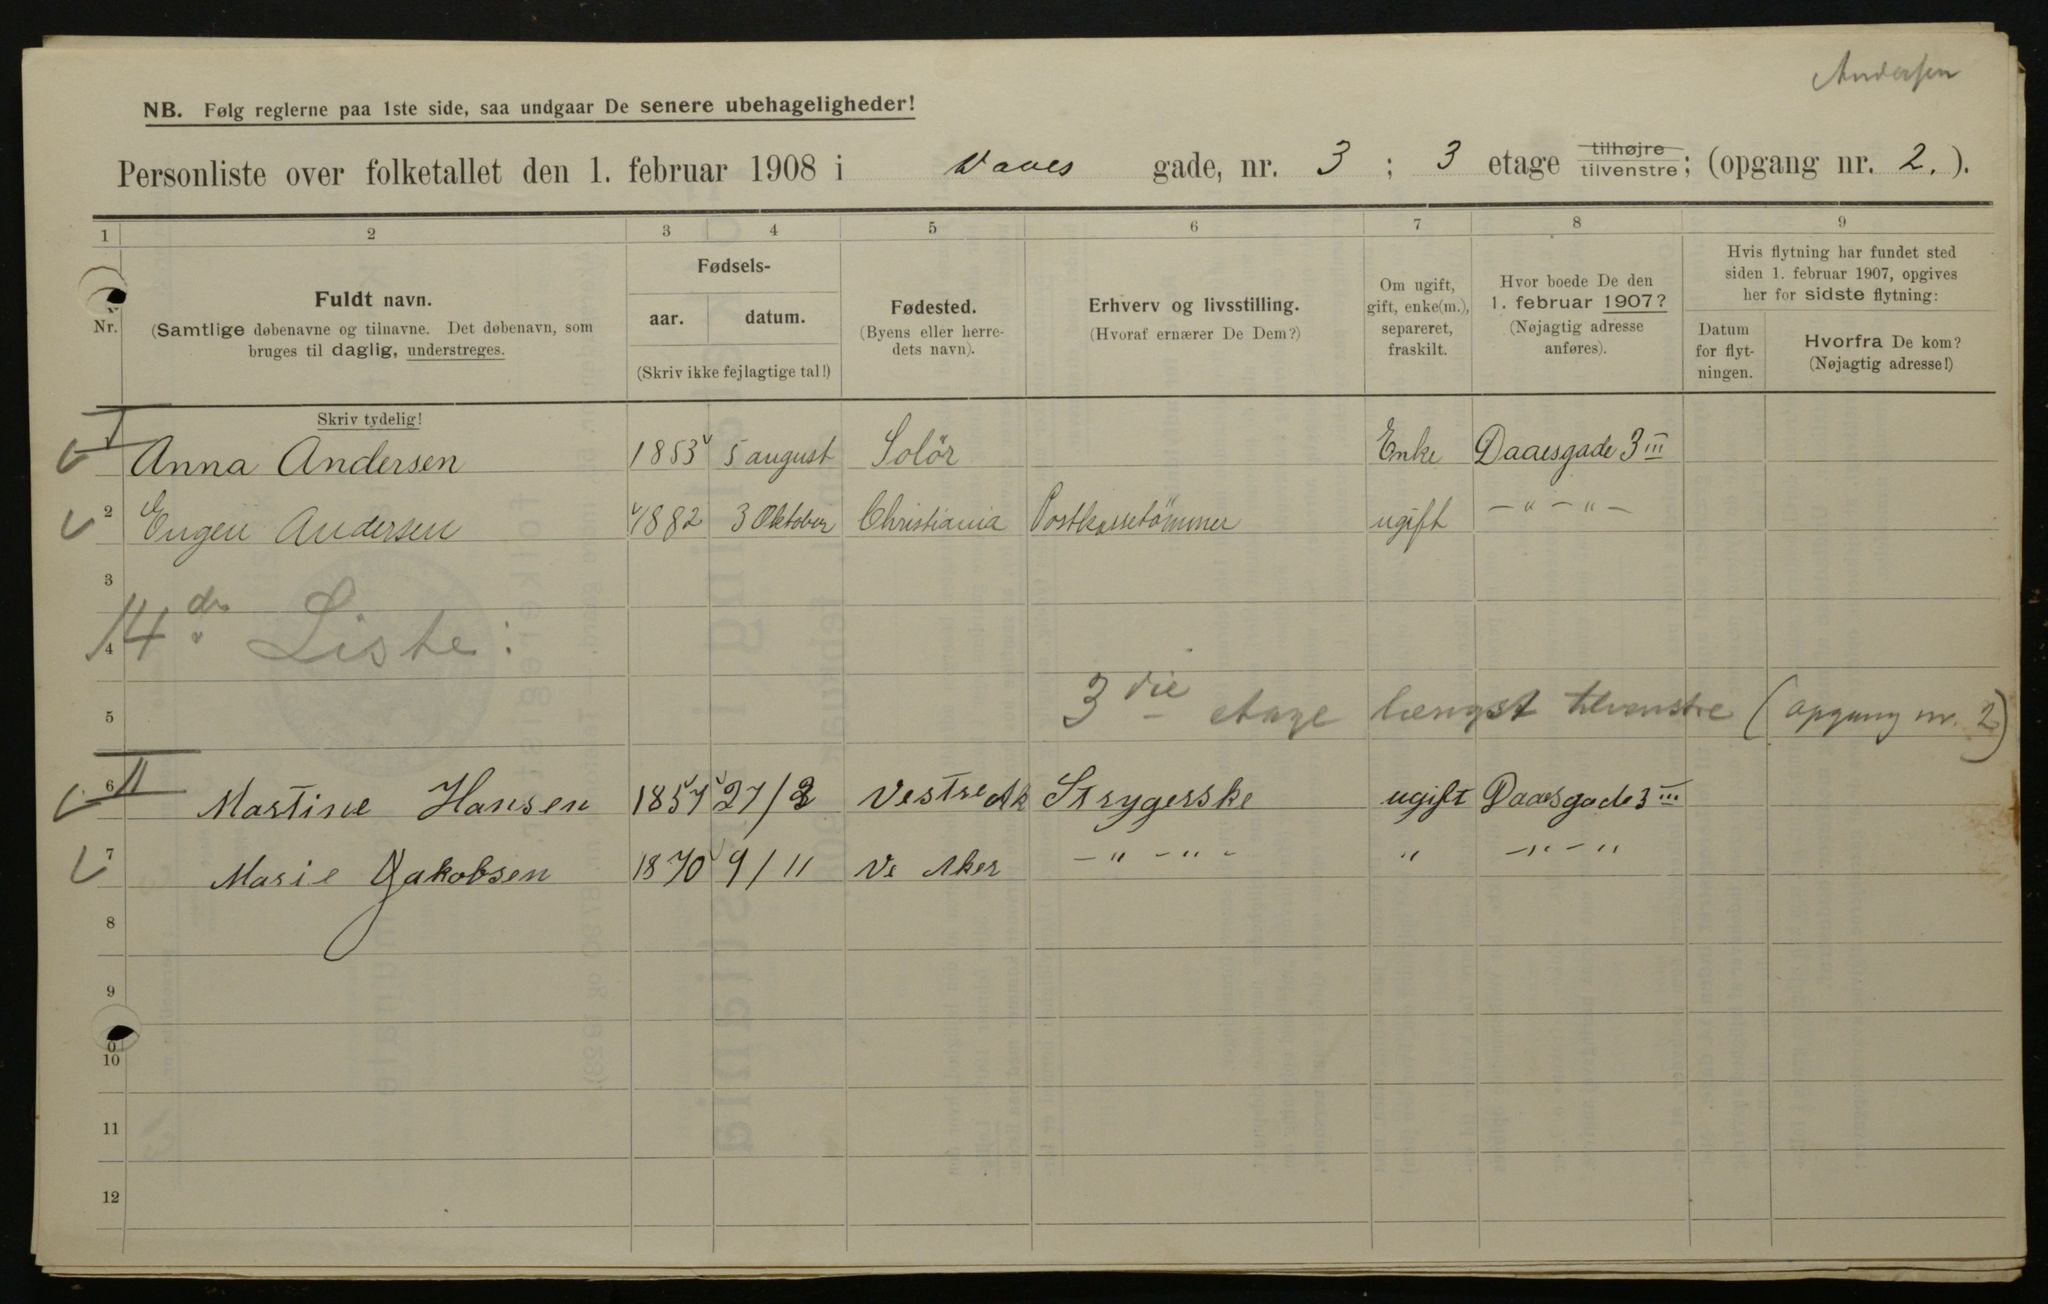 Andersen
NB. Følg reglerne paa 1ste side, saa undgaar De senere ubehageligheder!
Personliste over folketallet den 1. februar 1908 i Daaes gade, nr. 3 ; 3 etage tilhøjre tilvenstre; (opgang nr. 2. ).
1 2 3 4 5 6 7 8 9
Nr.
Fuldt navn.
(Samtlige døbenavne og tilnavne. Det døbenavn, som
bruges til daglig, understreges.
Skriv tydelig!
Fødsels-
aar. datum.
(Skriv ikke fejlagtige tal!)
Fødested.
(Byens eller herre-
dets navn).
Erhverv og livsstilling.
(Hvoraf ernærer De Dem?)
Om ugift,
gift, enke(m.),
separeret,
fraskilt.
Hvor boede De den
1. februar 1907?
(Nøjagtig adresse
anføres).
Hvis flytning har fundet sted
siden 1. februar 1907, opgives
her for sidste flytning:
Datum
for flyt-
ningen.
Hvorfra De kom?
(Nøjagtig adresse!)
I
Anna Andersen 1853 5 august Solör Enke Daaesgade 3 III
2 Eugen Andersen 1882 3 Oktober Christiania Postkassetömmer ugift — " — " —
3
4 14de Liste:
5 3die etage længst tilvenstre (opgang nr. 2)
6 II Martine Hansen 1857 27/2 Vestre Ak Strygerske ugift Daaesgade 3 III
7 Marie Jakobsen 1870 9/11 Ve Aker — " — " — " — " — "
8
9
10
11
12